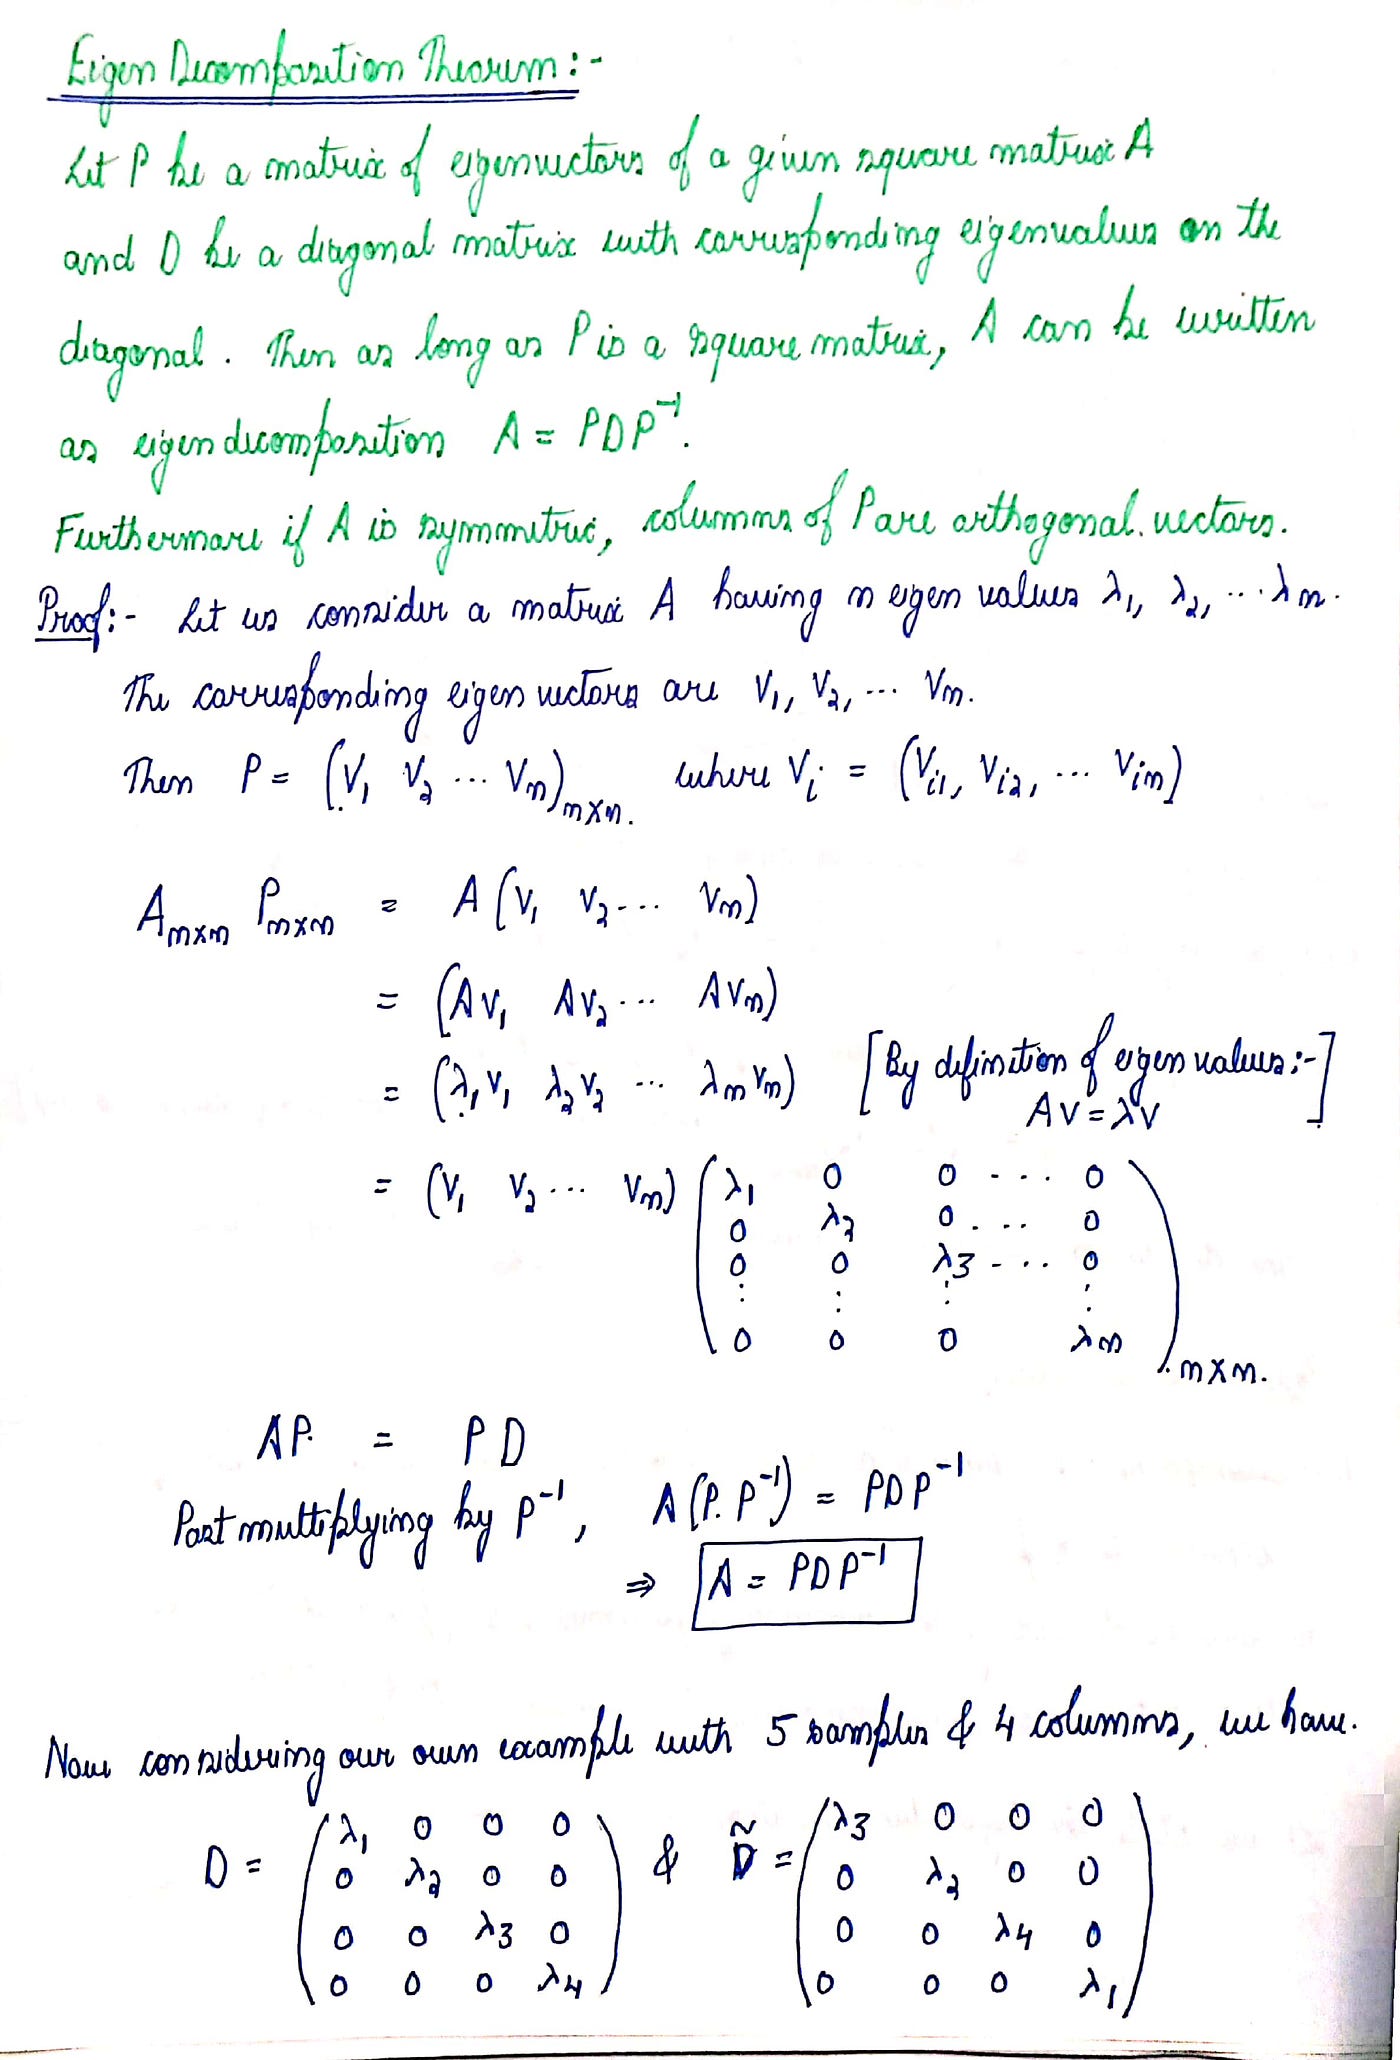 Eigen Decomposition Theorem :-
Let P be a matrix of eigenvectors of a given square matrix A
and D be a diagonal matrix with corresponding eigenvalues on the
diagonal. Then as long as P is a square matrix, A can be written
as eigen decomposition A = PDP⁻¹.
Furthermore if A is symmetric, columns of P are orthogonal vectors.
Proof:- Let us consider a matrix A having n eigen values λ₁, λ₂, ... λn.
The corresponding eigen vectors are V₁, V₂, ... Vn.
Then P = (V₁ V₂ ... Vn)n×n. where Vi = (Vi1, Vi2, ... Vin)
An×n Pn×n = A (V₁ V₂ ... Vn)
= (AV₁ AV₂ ... AVn)
= (λ₁V₁ λ₂V₂ ... λnVn) [By definition of eigen values:-]
AV = λV
= (V₁ V₂ ... Vn) (λ₁ 0 0 ... 0
0 λ₂ 0 ... 0
0 0 λ3 ... 0
⋮ ⋮ ⋮ ⋮
0 0 0 λn) n×n.
AP = PD
Post multiplying by P⁻¹, A(P.P⁻¹) = PDP⁻¹
⇒ A = PDP⁻¹
Now considering our own example with 5 samples & 4 columns, we have.
D = (λ₁ 0 0 0 & D̃ = (λ3 0 0 0
0 λ₂ 0 0 0 λ₂ 0 0
0 0 λ3 0 0 0 λ4 0
0 0 0 λ4) 0 0 0 λ₁)